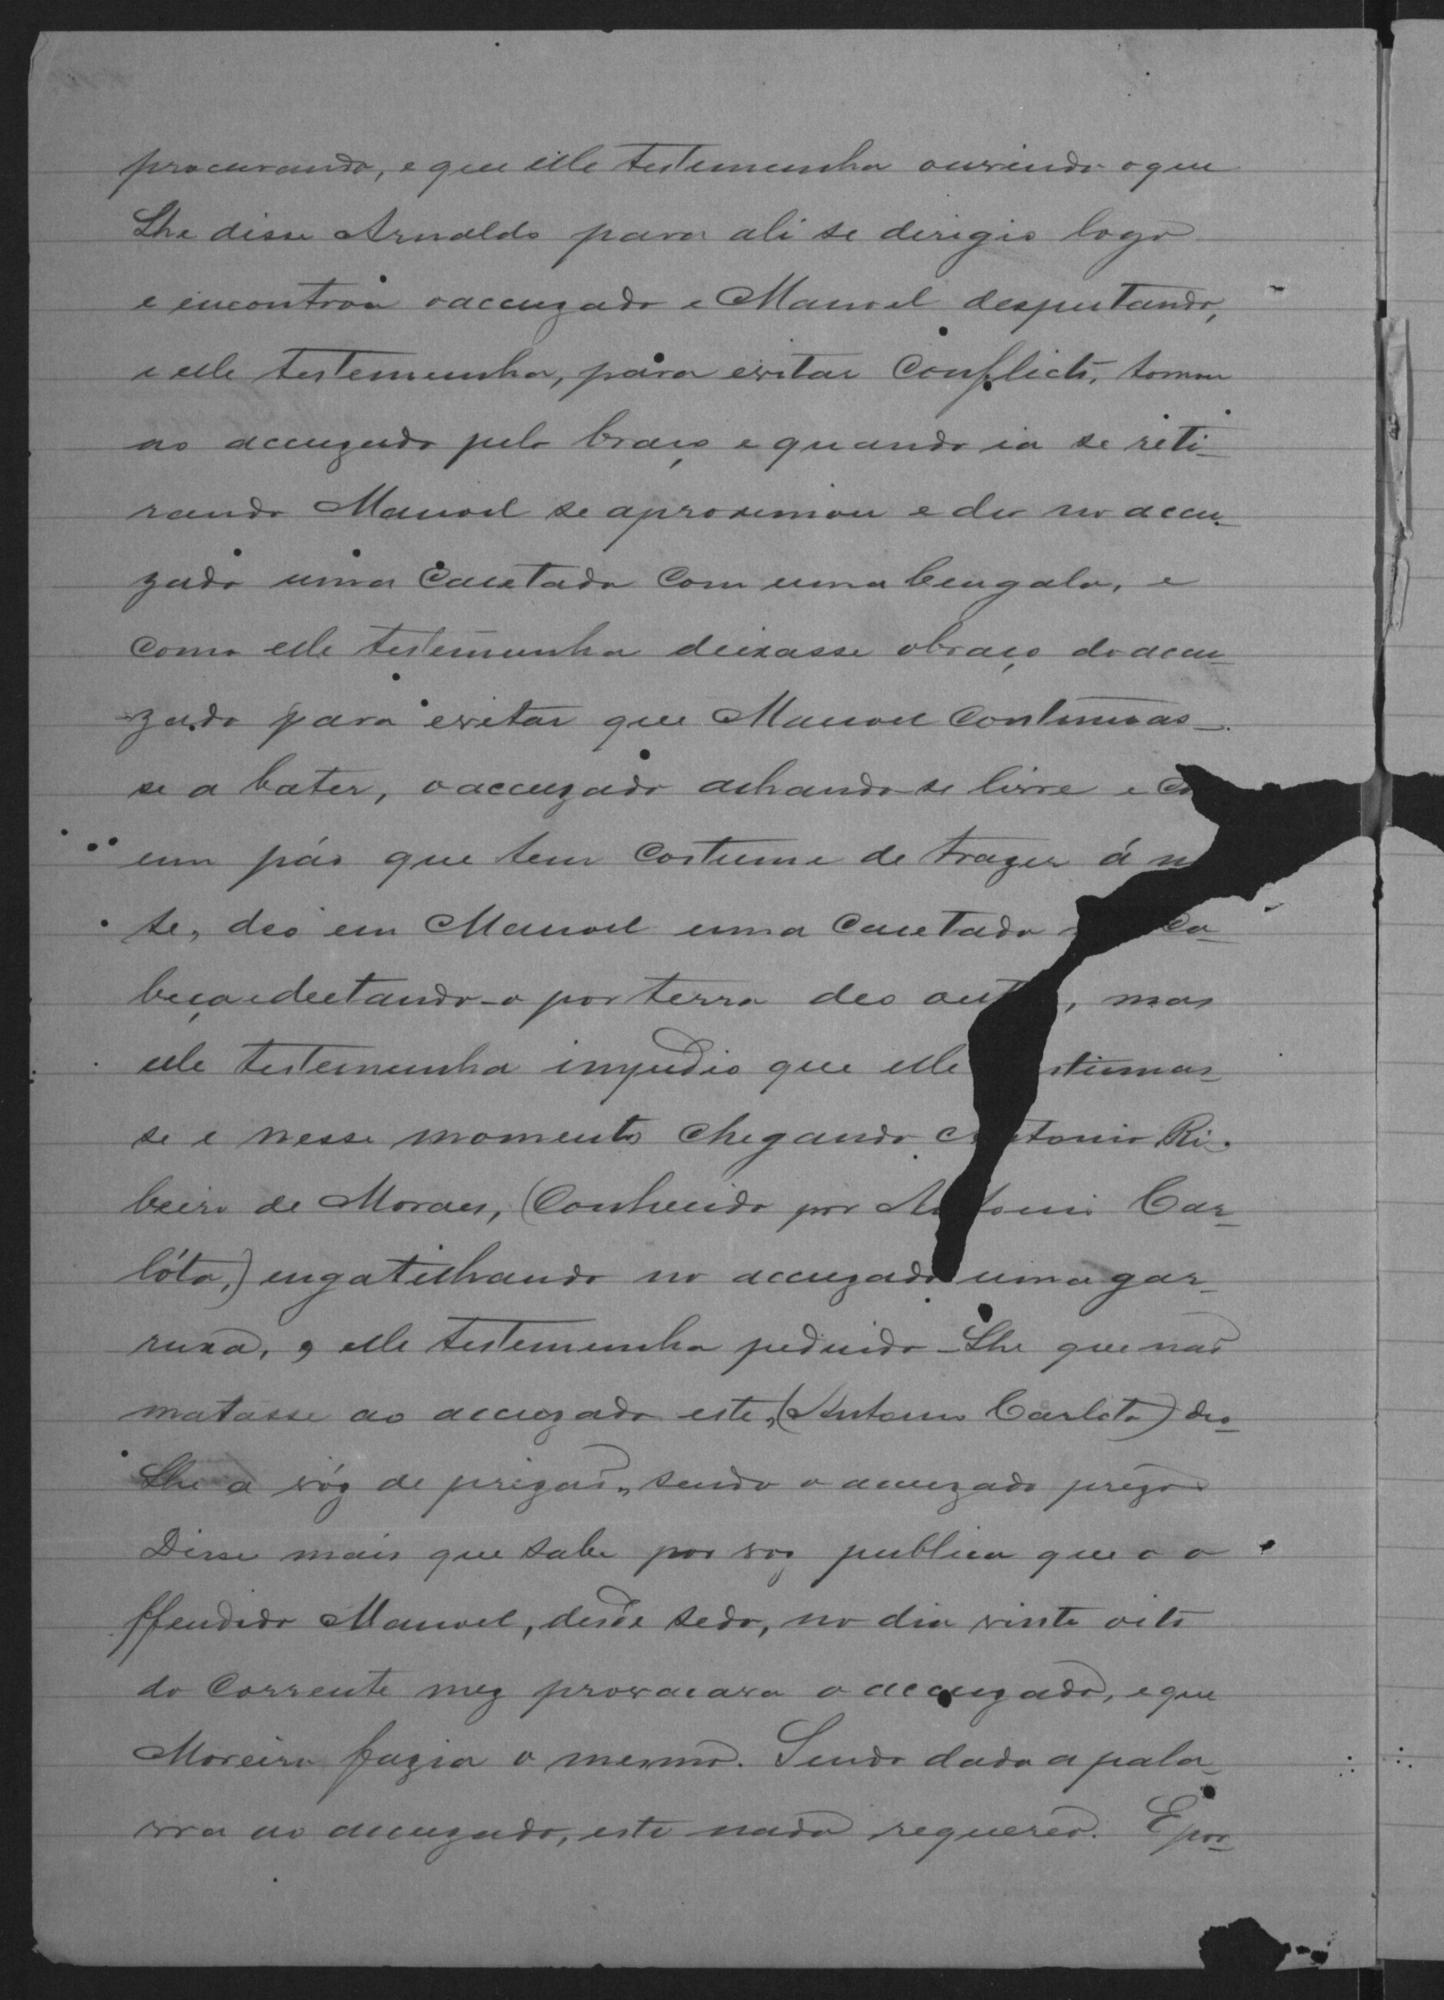 procurando, e que elle testemunha ouvindo o que
lhe disse Arnaldo para ali se dirigio logo
e encontrou o accuzado e Manoel desputando,
e elle testemunha, para evitar conflicto, tomou
ao accuzado pelo braço e quando ia se reti-
rando Manoel se aproximou e deu no accu-
zado uma cacetada com uma bengala, e
como elle testemunha deixasse o braço do accu-
zado para evitar que Manoel continuas-
se a bater, o accuzado achando-se livre e co
um páo que tem costume de trazer á n
te, deo em Manoel uma cacetada ca-
beça e deitando-o por terra deo out , mas
elle testemunha impedio que elle stinuas-
se e nesse momento chegando A tonio Ri-
beiro de Moraes, (conhecido por An tonio Car-
lóta,) engatilhando no accuzado uma gar-
ruxa, e elle testemunha pedindo-lhe que não
matasse ao accuzado este, (Antonio Carlota) deo-
lhe a vóz de prizão, sendo o accuzado prezo
Disse mais que sabe por voz publica que o o
ffendido Manoel, desde sedo, no dia vinte oito
do corrente mez provocava o accuzado, e que
Moreira fazia o mesmo. Sendo dada a pala-
vra ao accuzado, este nada requereo. E por